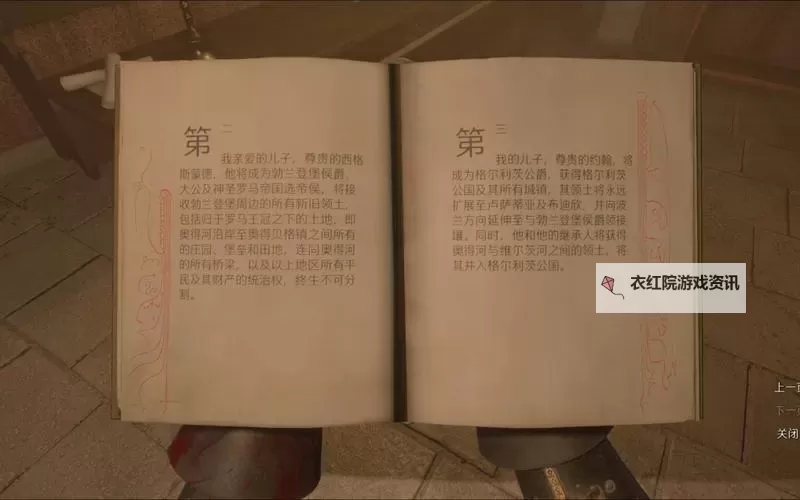 第二
我亲爱的儿子，尊贵的西格
斯蒙德，他将成为勃兰登堡侯爵、
大公及神圣罗马帝国选帝侯，将接
收勃兰登堡周边的所有新旧领土，
包括归于罗马王冠之下的土地，即
奥得河沿岸至奥得贝格镇之间所有
的庄园、堡垒和田地，连同奥得河
的所有桥梁，以及以上地区所有平
民及其财产的统治权，终生不可分
割。
第三
我的儿子，尊贵的约翰，将
成为格尔利茨公爵，获得格尔利茨
公国及其所有城镇，其领土将永远
扩展至卢萨蒂亚及布迪欣，并向波
兰方向延伸至与勃兰登堡侯爵领接
壤。同时，他和他的继承人将获得
奥得河与维尔茨河之间的领土，将
其并入格尔利茨公国。
衣红院游戏资讯
上一
下一
关闭